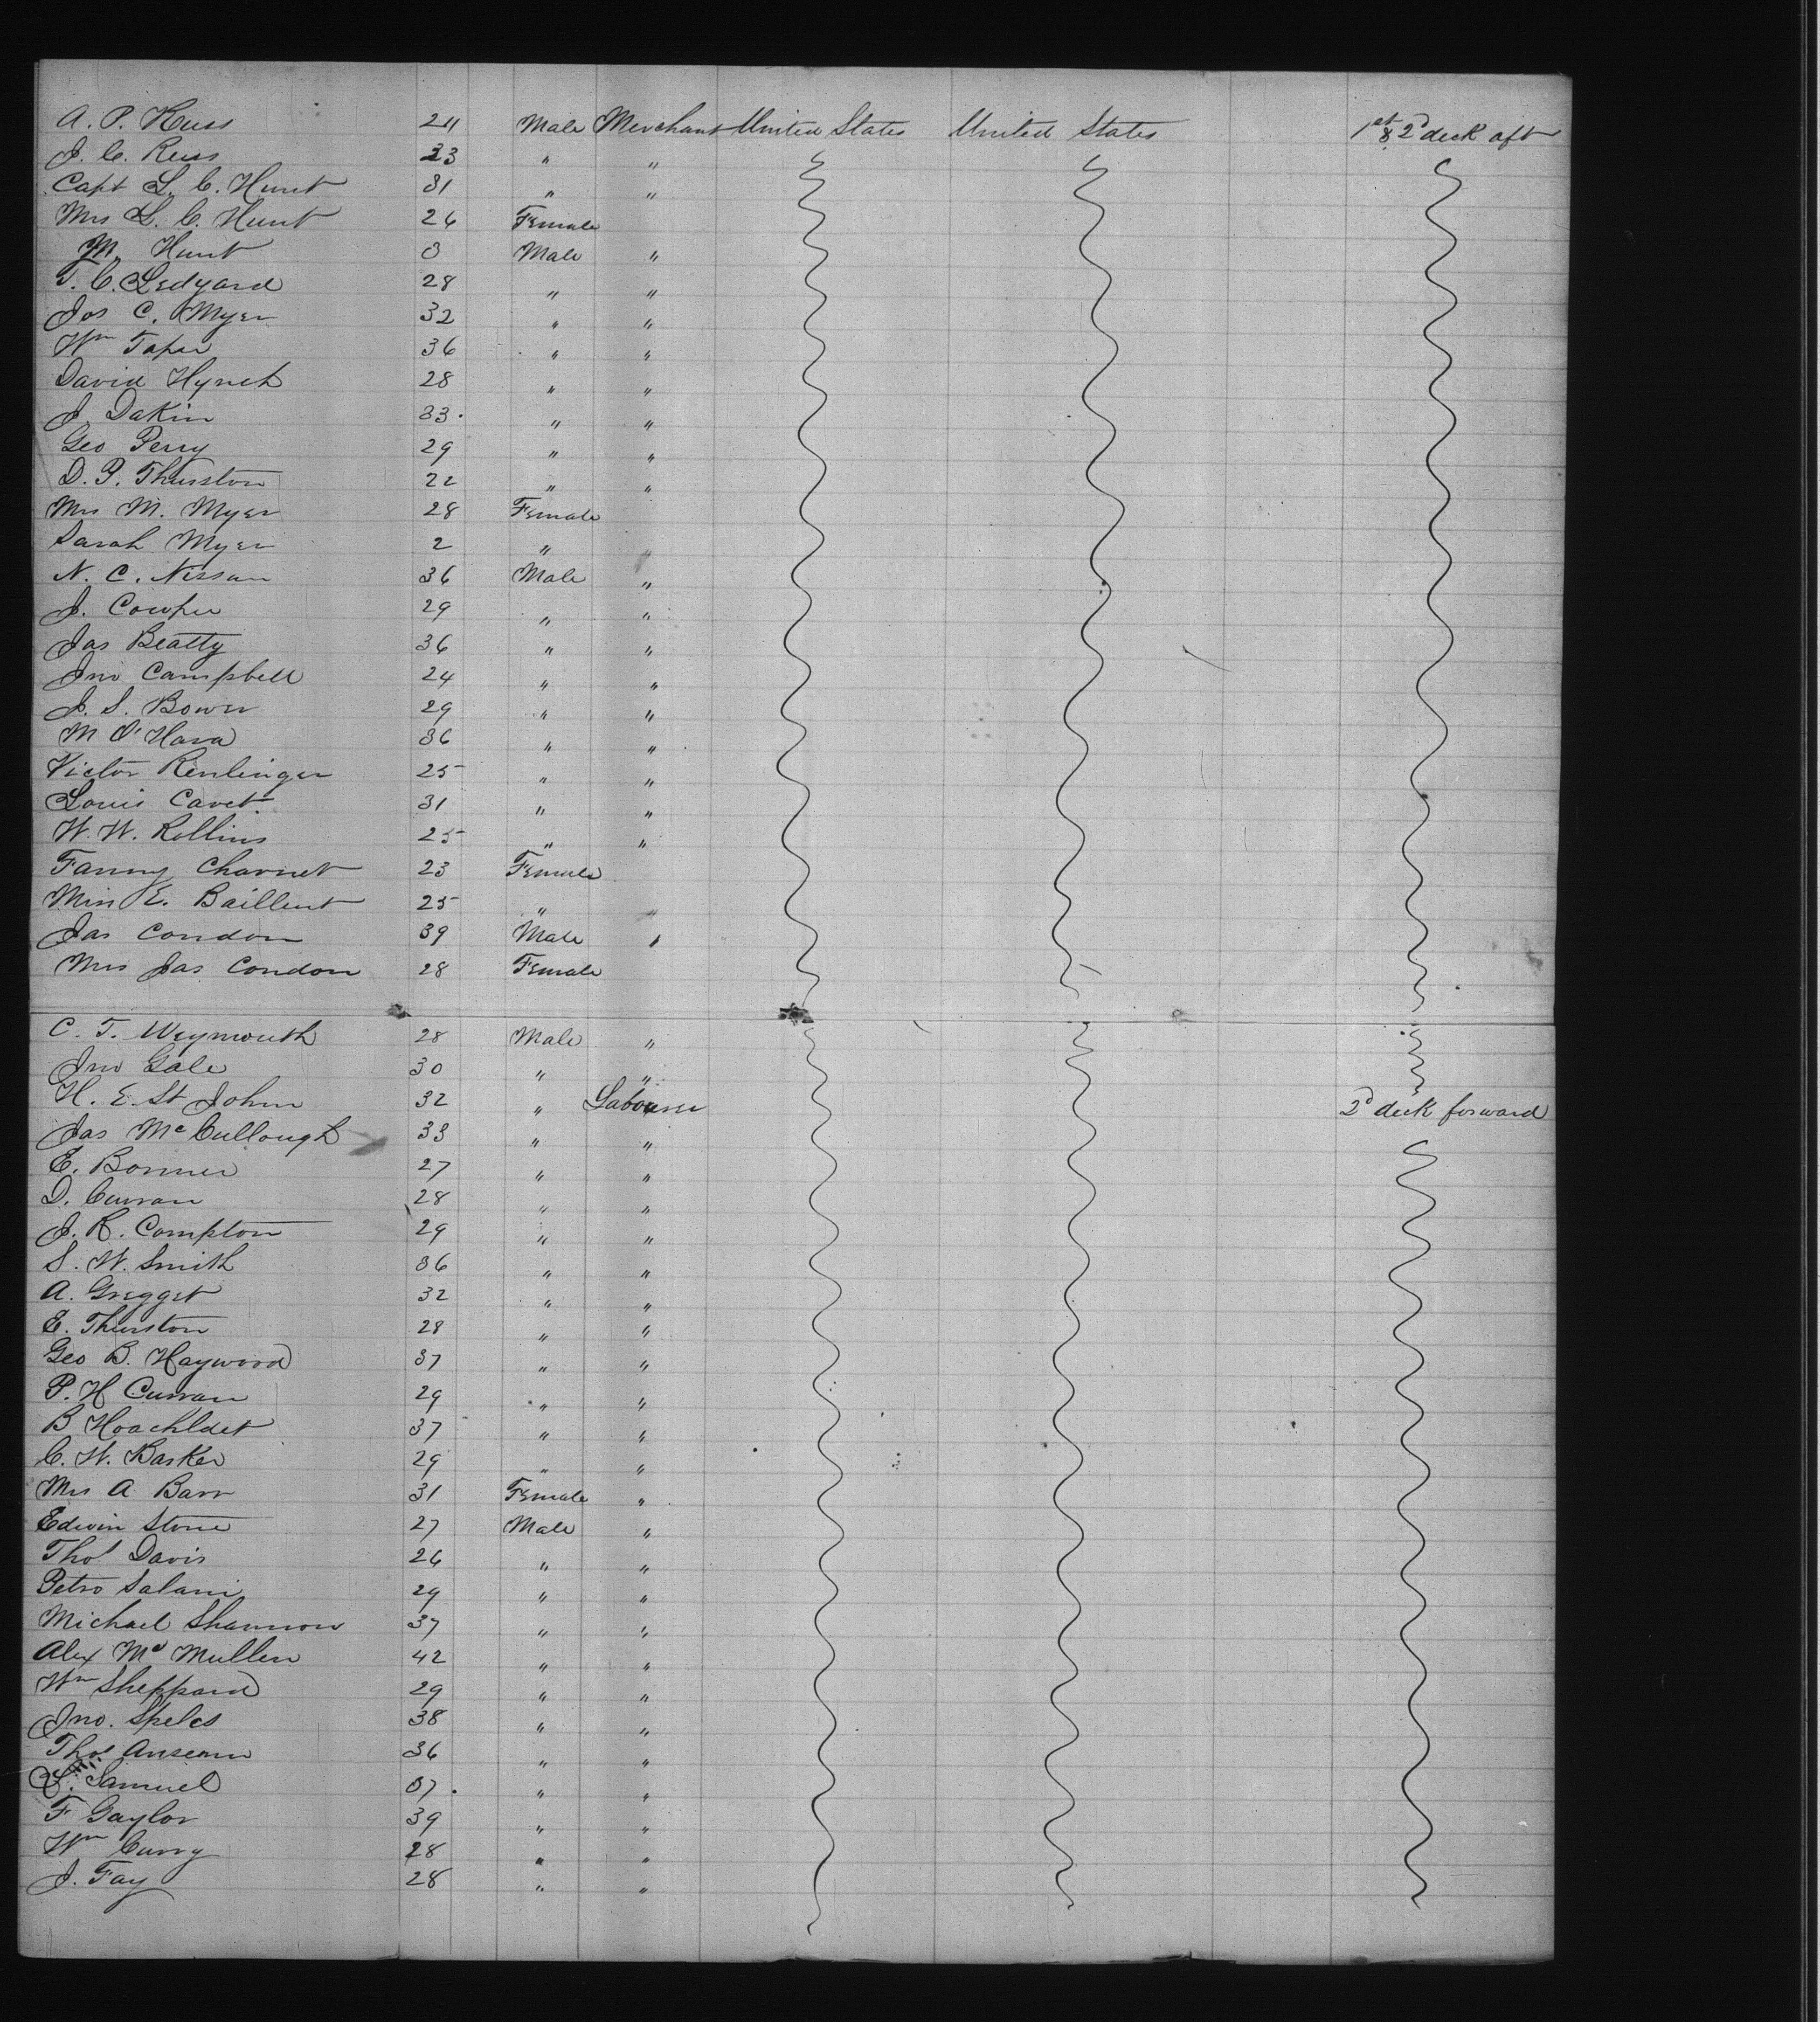 A. P. Huss 24 Male Merchant United States United States 1st & 2d deck aft
J. C. Reuss 23 " "
Capt L. C. Hunt 31 " "
Mrs L. C. Hunt 26 Female
M. Hunt 3 Male "
T. C. Ledyard 28 " "
Jos C. Myer 32 " "
Wm Taper 36 " "
David Hynch 28 " "
J. Dakin 33 " "
Geo Perry 29 " "
D. P. Thurston 22 " "
Mrs M. Myer 28 Female
Sarah Myer 2 " "
N. C. Nissan 36 Male "
J. Cowper 29 " "
Jas Beatty 36 " "
Jno Campbell 24 " "
J. S. Bower 29 " "
M O'Hara 36 " "
Victor Renlinger 25 " "
Louis Cavet 31 " "
W. W. Rollins 25 " "
Fanny Charnet 23 Female
Miss E. Baillent 25 " "
Jas Condon 39 Male "
Mrs Jas Condon 28 Female
C. T. Weymouth 28 Male "
Jno Gale 30 " "
H. E. St John 32 " Labourer 2d deck forward
Jas McCullough 33 " "
E. Bonner 27 " "
D. Curran 28 " "
J. R. Compton 29 " "
S. W. Smith 36 " "
A. Gregget 32 " "
E. Thurston 28 " "
Geo B. Haywood 37 " "
P. H Curran 29 " "
B Hoachldet 37 " "
C. W. Barker 29 " "
Mrs A Barr 31 Female "
Edwin Stone 27 Male "
Thos Davis 26 " "
Petro Salani 29 " "
Michael Shannon 37 " "
Alex Mc Mullen 42 " "
Wm Sheppard 29 " "
Jno. Speles 38 " "
Thos Anseman 36 " "
L. Samuel 37 " "
F Gaylor 39 " "
Wm Curry 28 " "
J. Fay 28 " "